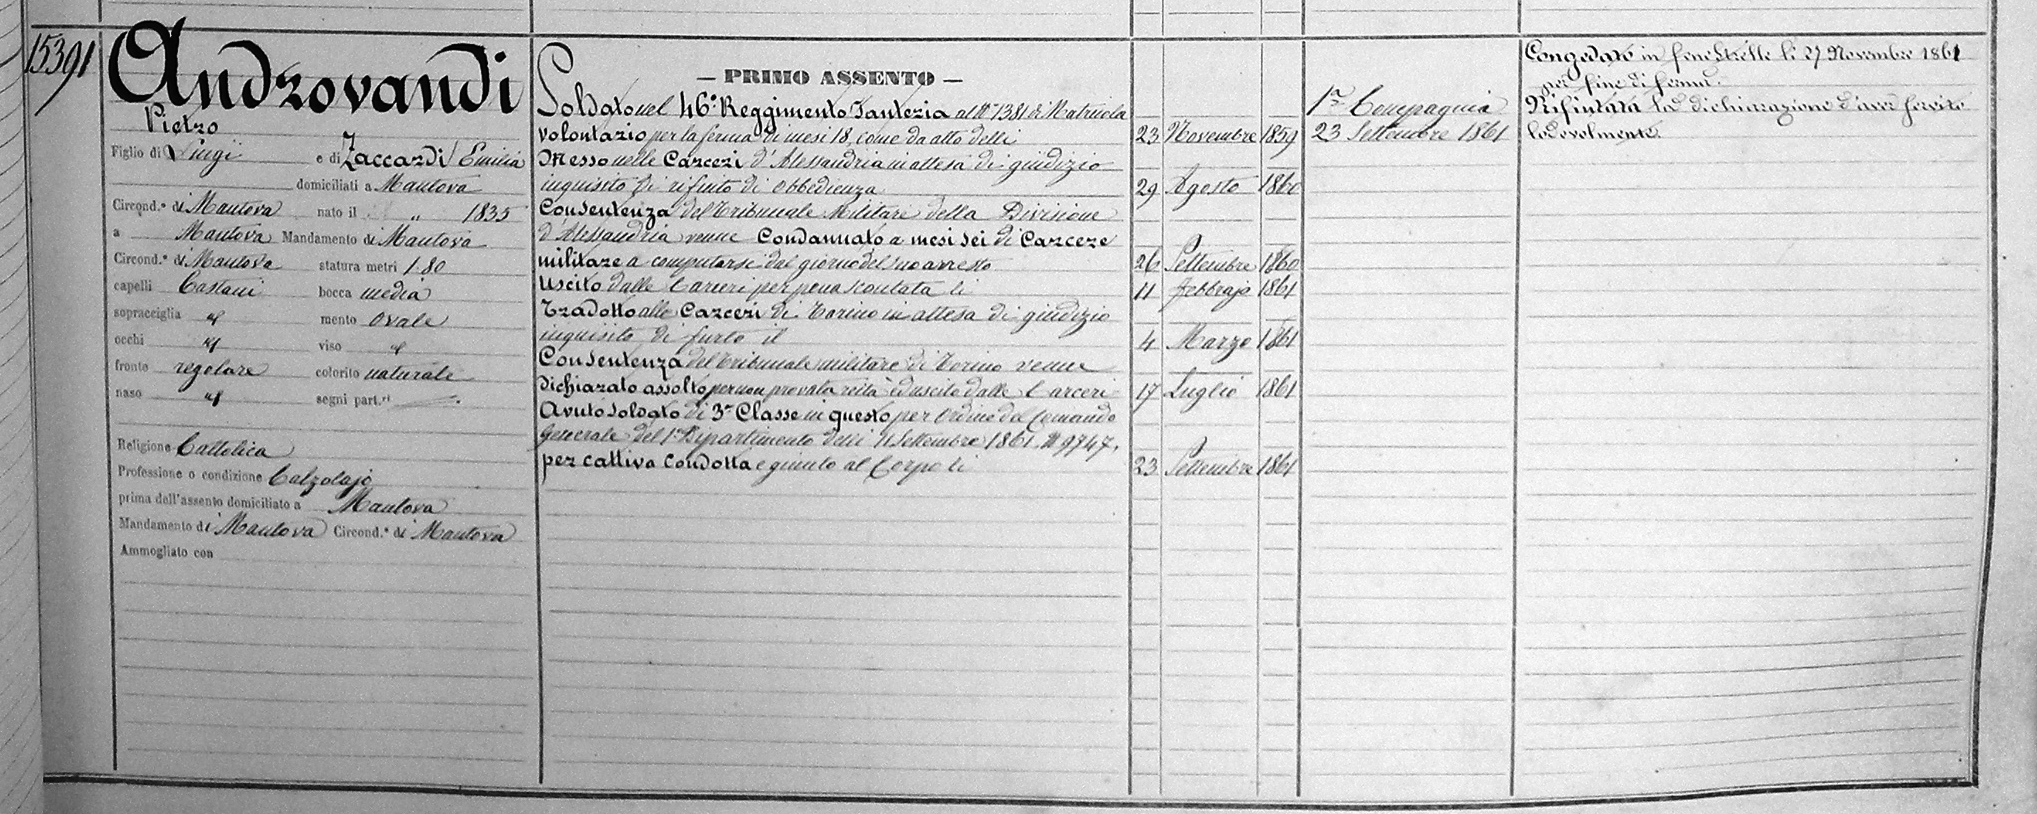 15391
Androvandi
Pietro
Figlio di Luigi e di Zaccardi Emilia
domiciliati a Mantova
Circond.º di Mantova nato il „ 1835
a Mantova Mandamento di Mantova
Circond.º di Mantova statura metri 1 80
capelli Castani bocca media
sopracciglia " mento ovale
occhi " viso "
fronte regolare colorito naturale
naso " segni part.ri
Religione Cattolica
Professione o condizione Calzolajo
prima dell'assento domiciliato a Mantova
Mandamento di Mantova Circond.º di Mantova
Ammogliato con
— PRIMO ASSENTO —
Soldato nel 46º Reggimento Fanteria al Nº 7381 di Matricola
volontario per la ferma di mesi 18, come da atto delli 23 Novembre 1859
Messo nelle Carceri d'Alessandria in attesa di giudizio
inquisito di rifiuto di obbedienza 29 Agosto 1860
Con sentenza del Tribunale Militare della Divisione
d'Alessandria venne Condannato a mesi sei di Carcere
militare a computarsi dal giorno del suo arresto 26 Settembre 1860
Uscito dalle Carceri per pena scontata li 11 Febbrajo 1861
Tradotto alle Carceri di Torino in attesa di giudizio
inquisito di furto il 4 Marzo 1861
Con sentenza del Tribunale militare di Torino venne
dichiarato assolto per non provata reità ed uscito dalle Carceri 17 Luglio 1861
Avuto soldato di 3ª Classe in questo per Ordine del Comando
Generale del 1º Dipartimento delli Settembre 1861. Nº 9747,
per cattiva condotta e giunto al Corpo li 23 Settembre 1861
1ª Compagnia
23 Settembre 1861
Congedato in Fenestrelle li 27 Novembre 1861
per fine di ferma.
Rifiutata la dichiarazione d'aver servito
lodevolmente.